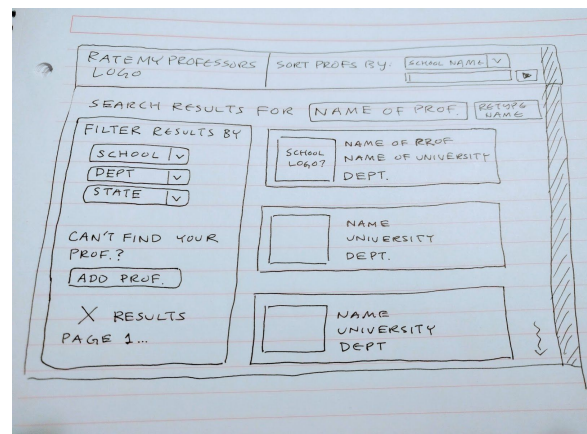 RATE MY PROFESSORS
LOGO
SORT PROFS BY:
SCHOOL NAME
SEARCH RESULTS FOR NAME OF PROF.
RETYPE
NAME
FILTER RESULTS BY
SCHOOL
DEPT
STATE
CAN'T FIND YOUR
PROF.?
ADD PROF.
X RESULTS
PAGE 1...
SCHOOL
LOGO?
NAME OF PROF
NAME OF UNIVERSITY
DEPT.
NAME
UNIVERSITY
DEPT.
NAME
UNIVERSITY
DEPT